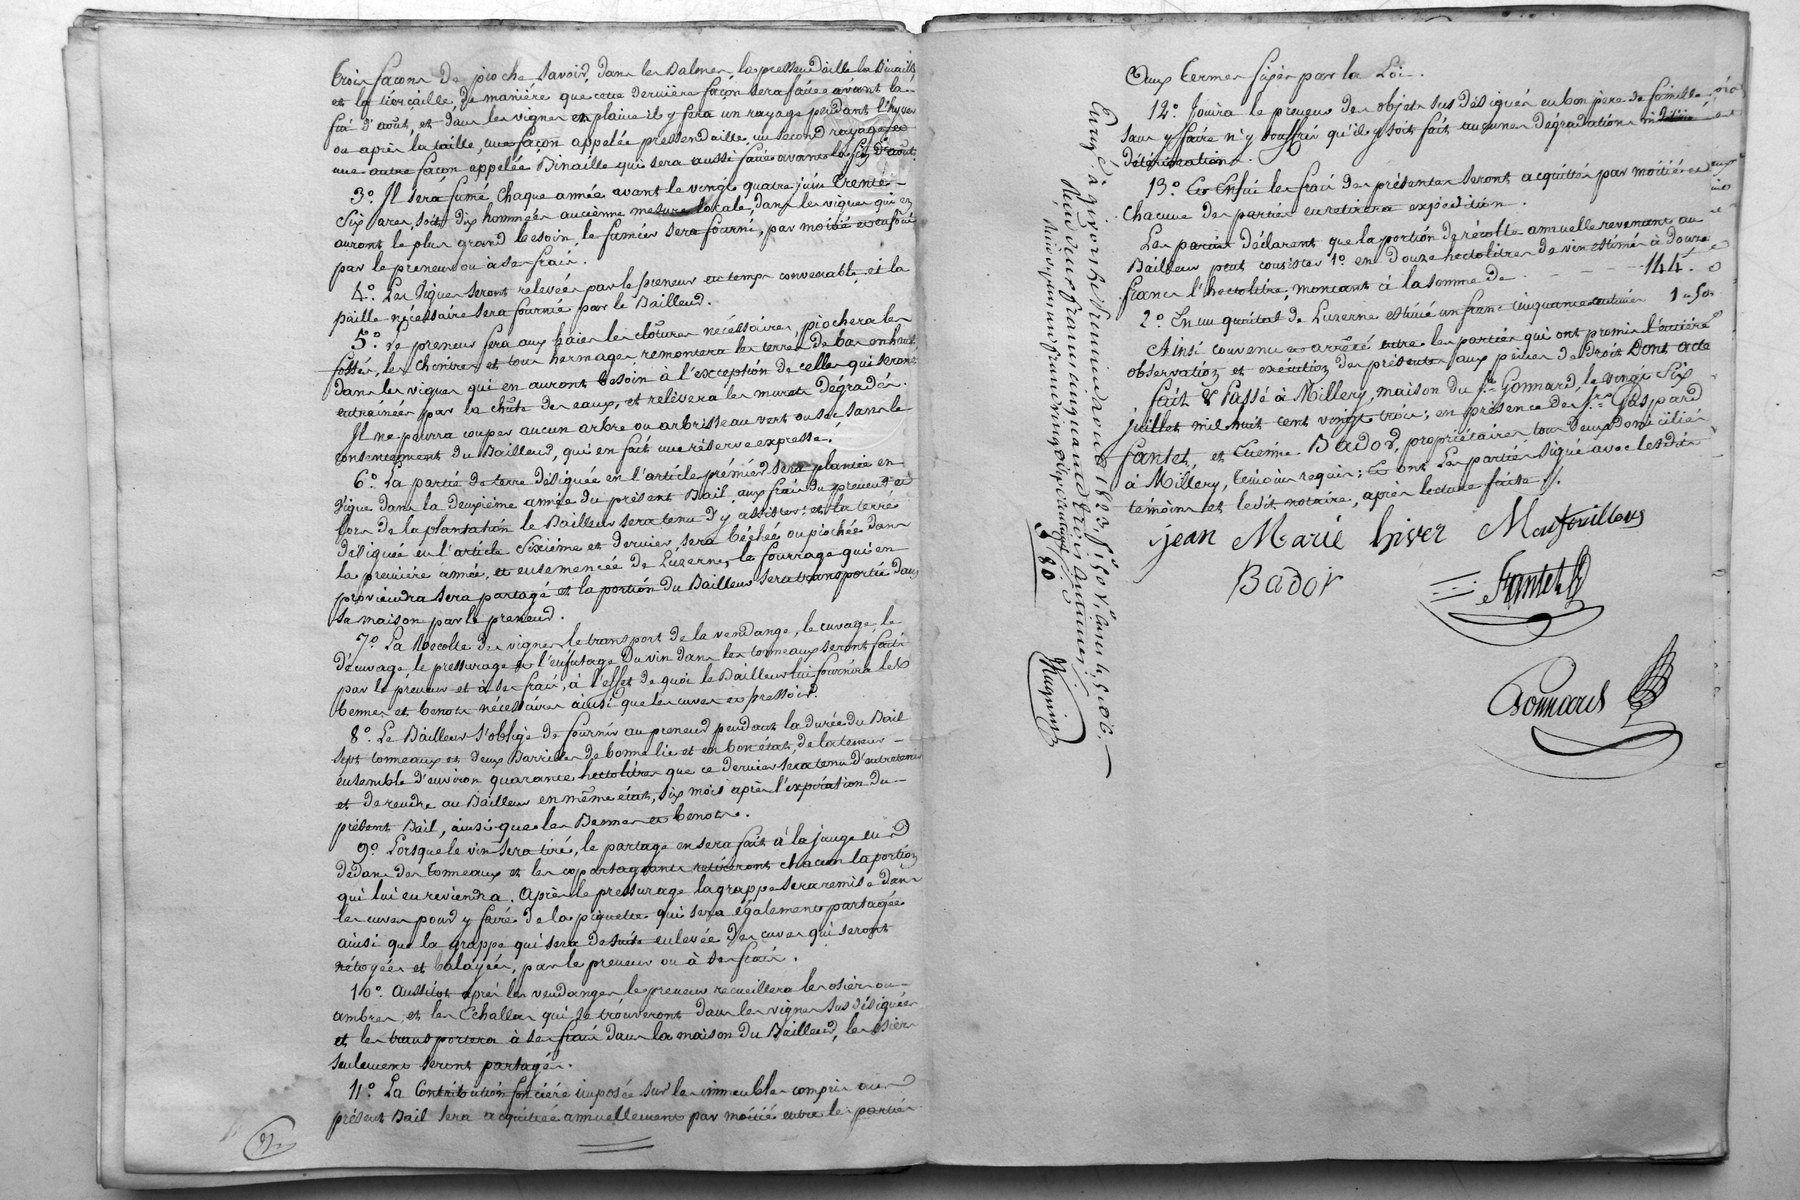 trois façons de pioche savoir, dans les Balmes la pressendaille la Binaille
et la tiercaille, de manière que cette dernière façon sera faite avant la
fin d'août, et dans les vignes en plaine il y fera un rayage pendant l'hyver
ou après la taille, une façon appelée pressendaille, un second rayage et
une autre façon appelée Binaille qui sera aussi faite avant la fin d'août.
3.º Il sera fumé chaque année avant le vingt quatre juin trente
six ares, soit dix hommées ancienne mesure locale, dans les vignes qui en
auront le plus grand besoin, le fumier sera fourni, par moitié et enfoui
par le preneur ou à ses frais.
4.º Les Vignes seront relevées par le preneur en temps convenable, et la
paille nécessaire sera fournie par le Bailleur.
5.º Le preneur fera aux haies les clôtures nécessaires, piochera les
fossés, les chintres et tous hermages remontera les terres de bas en haut
dans les vignes qui en auront besoin à l'exception de celles qui seront
entrainées par la chûte des eaux, et relèvera les murets dégradés.
Il ne pourra couper aucun arbre ou arbrisseau vert ou sec sans le
consentement du Bailleur, qui en fait une réserve expresse.
6.º La partie de terre désignée en l'article prémier sera plantée en
Vigne dans la deuxième année du présent Bail, aux frais du preneur et
lors de la plantation le Bailleur sera tenu d'y assister; et la terre
désignée en l'article sixième et dernier sera bêchée ou piochée dans
la première année, et ensemencée de Luzerne, le fourrage qui en
proviendra sera partagé et la portion du Bailleur sera transportée dans
sa maison par le preneur.
7.º La Récolte des vignes, le transport de la vendange, le cuvage, le
décuvage le pressurage et l'enfutage du vin dans les tonneaux seront faits
par le preneur et à ses frais, à l'effet de quoi le Bailleur lui fournira les
bennes et benots nécessaires ainsi que les cuves et pressoir.
8.º Le Bailleur s'oblige de fournir au preneur pendant la durée du Bail
sept tonneaux et deux Barriles de bonne lie et en bon état, de la teneur
ensemble d'environ quarante hectolitres que ce dernier sera tenu d'entretenir
et de rendre au Bailleur en même état, six mois après l'expiration du
présent Bail, ainsi que les Bennes et benots.
9.º Lorsque le vin sera tiré, le partage en sera fait à la jauge en
dedans des tonneaux et les copartageants retireront chacun la portion
qui lui en reviendra. Après le pressurage la grappe sera remise dans
les cuves pour y faire de la piquette qui sera également partagée
ainsi que la grappe qui sera de suite enlevée des cuves qui seront
nétoyées et balayées, par le preneur ou à ses frais.
10.º Aussitôt après les vendanges le preneur recueillera les osiers ou
ambres, et les Échallas qui se trouveront dans les vignes sus désignées
et les transportera à ses frais dans la maison du Bailleur, les osiers
seulement seront partagés.
11.º La Contribution foncière imposée sur les immeubles compris au
présent Bail sera acquittée annuellement par moitié entre les parties
aux termes fixés par la Loi.
12.º Jouira le preneur des objets sus désignés en bon père de famille
sans y faire n'y souffrir qu'il y soit fait aucunes dégradations ni
détérioration.
13.º Et Enfin les frais des présentes seront acquittés par moitié et
chacune des parties en retirera expédition.
Les parties déclarent que la portion de récolte annuelle revenant au
Bailleur peut consister 1.º en douze hectolitres de vin estimés à douze
francs l'hectolitre, montant à la somme de 144.
2.º En un quintal de Luzerne estimé un franc cinquante centimes 1 50
Ainsi convenu et arrêté entre les parties qui ont promis l'entière
observation et exécution des présentes aux peines de droit Dont acte
fait & Passé à Millery, maison du S.r Gonnard, le vingt six
juillet mil huit cent vingt trois; en présence de S.rs Gaspard
fantet, et Etienne Bador, propriétaires tous deux domiciliés
à Millery, témoins requis; et ont Les parties signé avec lesdits
témoins et ledit notaire, après lecture faite.
jean Marie hiver Montfouilloux
Bador Fantet
Gonnard